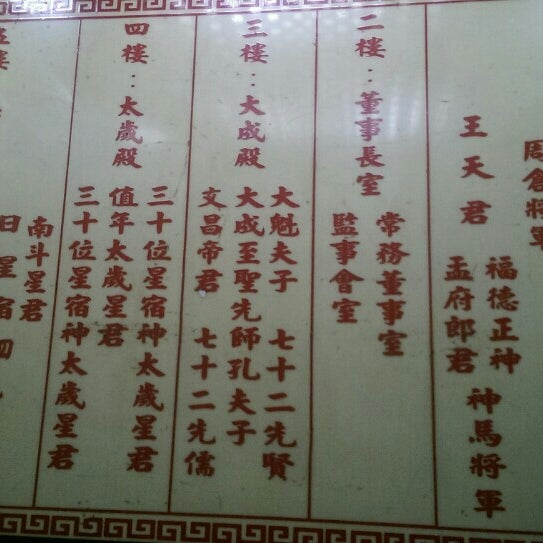 周倉將軍
王天君
福德正神 神馬將軍
孟府郎君
二樓：董事長室
常務董事室
監事會室
三樓：大成殿
大魁夫子 七十二先賢
大成至聖先師孔夫子
文昌帝君 七十二先儒
四樓：太歲殿
三十位星宿神太歲星君
值年太歲星君
三十位星宿神太歲星君
五樓
南斗星君